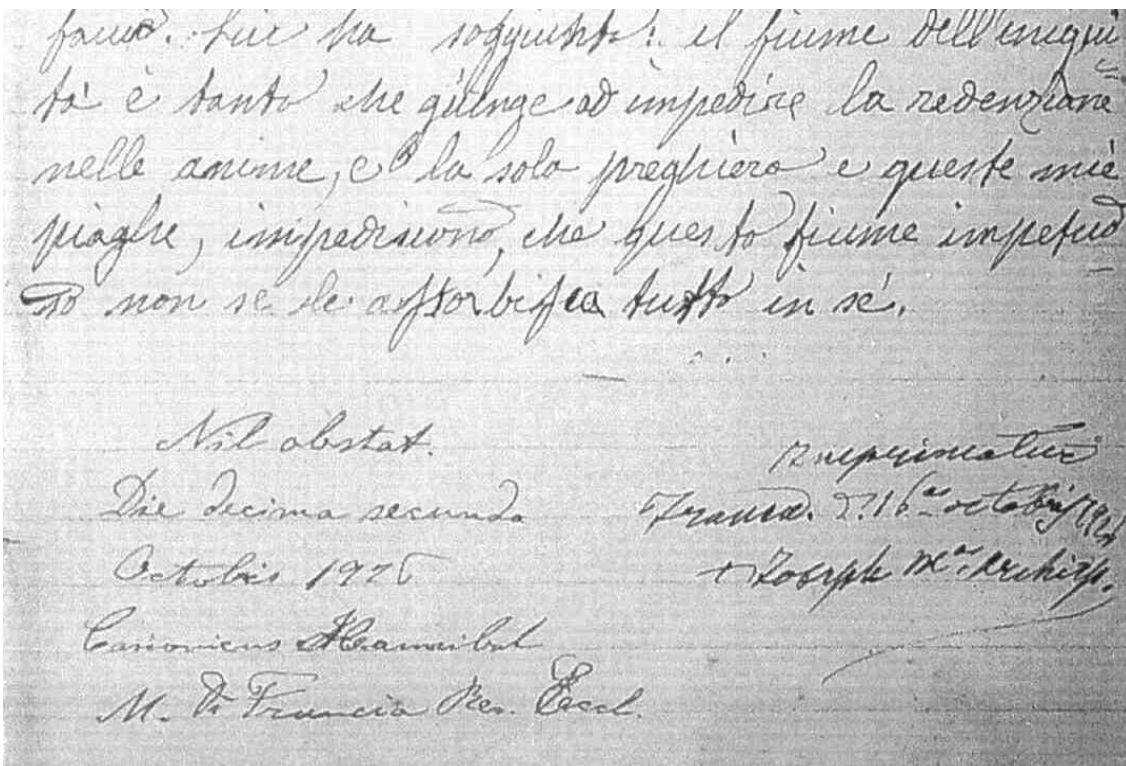 faccio. Lui ha soggiunto: il fiume dell'iniqui
tà è tanto che giunge ad impedire la redenzione
nelle anime, e la sola preghiera e queste mie
piaghe, impediscono, che questo fiume impetuo
so non se le assorbisca tutto in sé.
Nil obstat.
Die decima secunda
Octobris 1926
Canonicus Hannibal
M. Di Francia Rev. Eccl.
Imprimatur
Trani. D. 16 octobris 1926
+ Joseph M. Archiep.